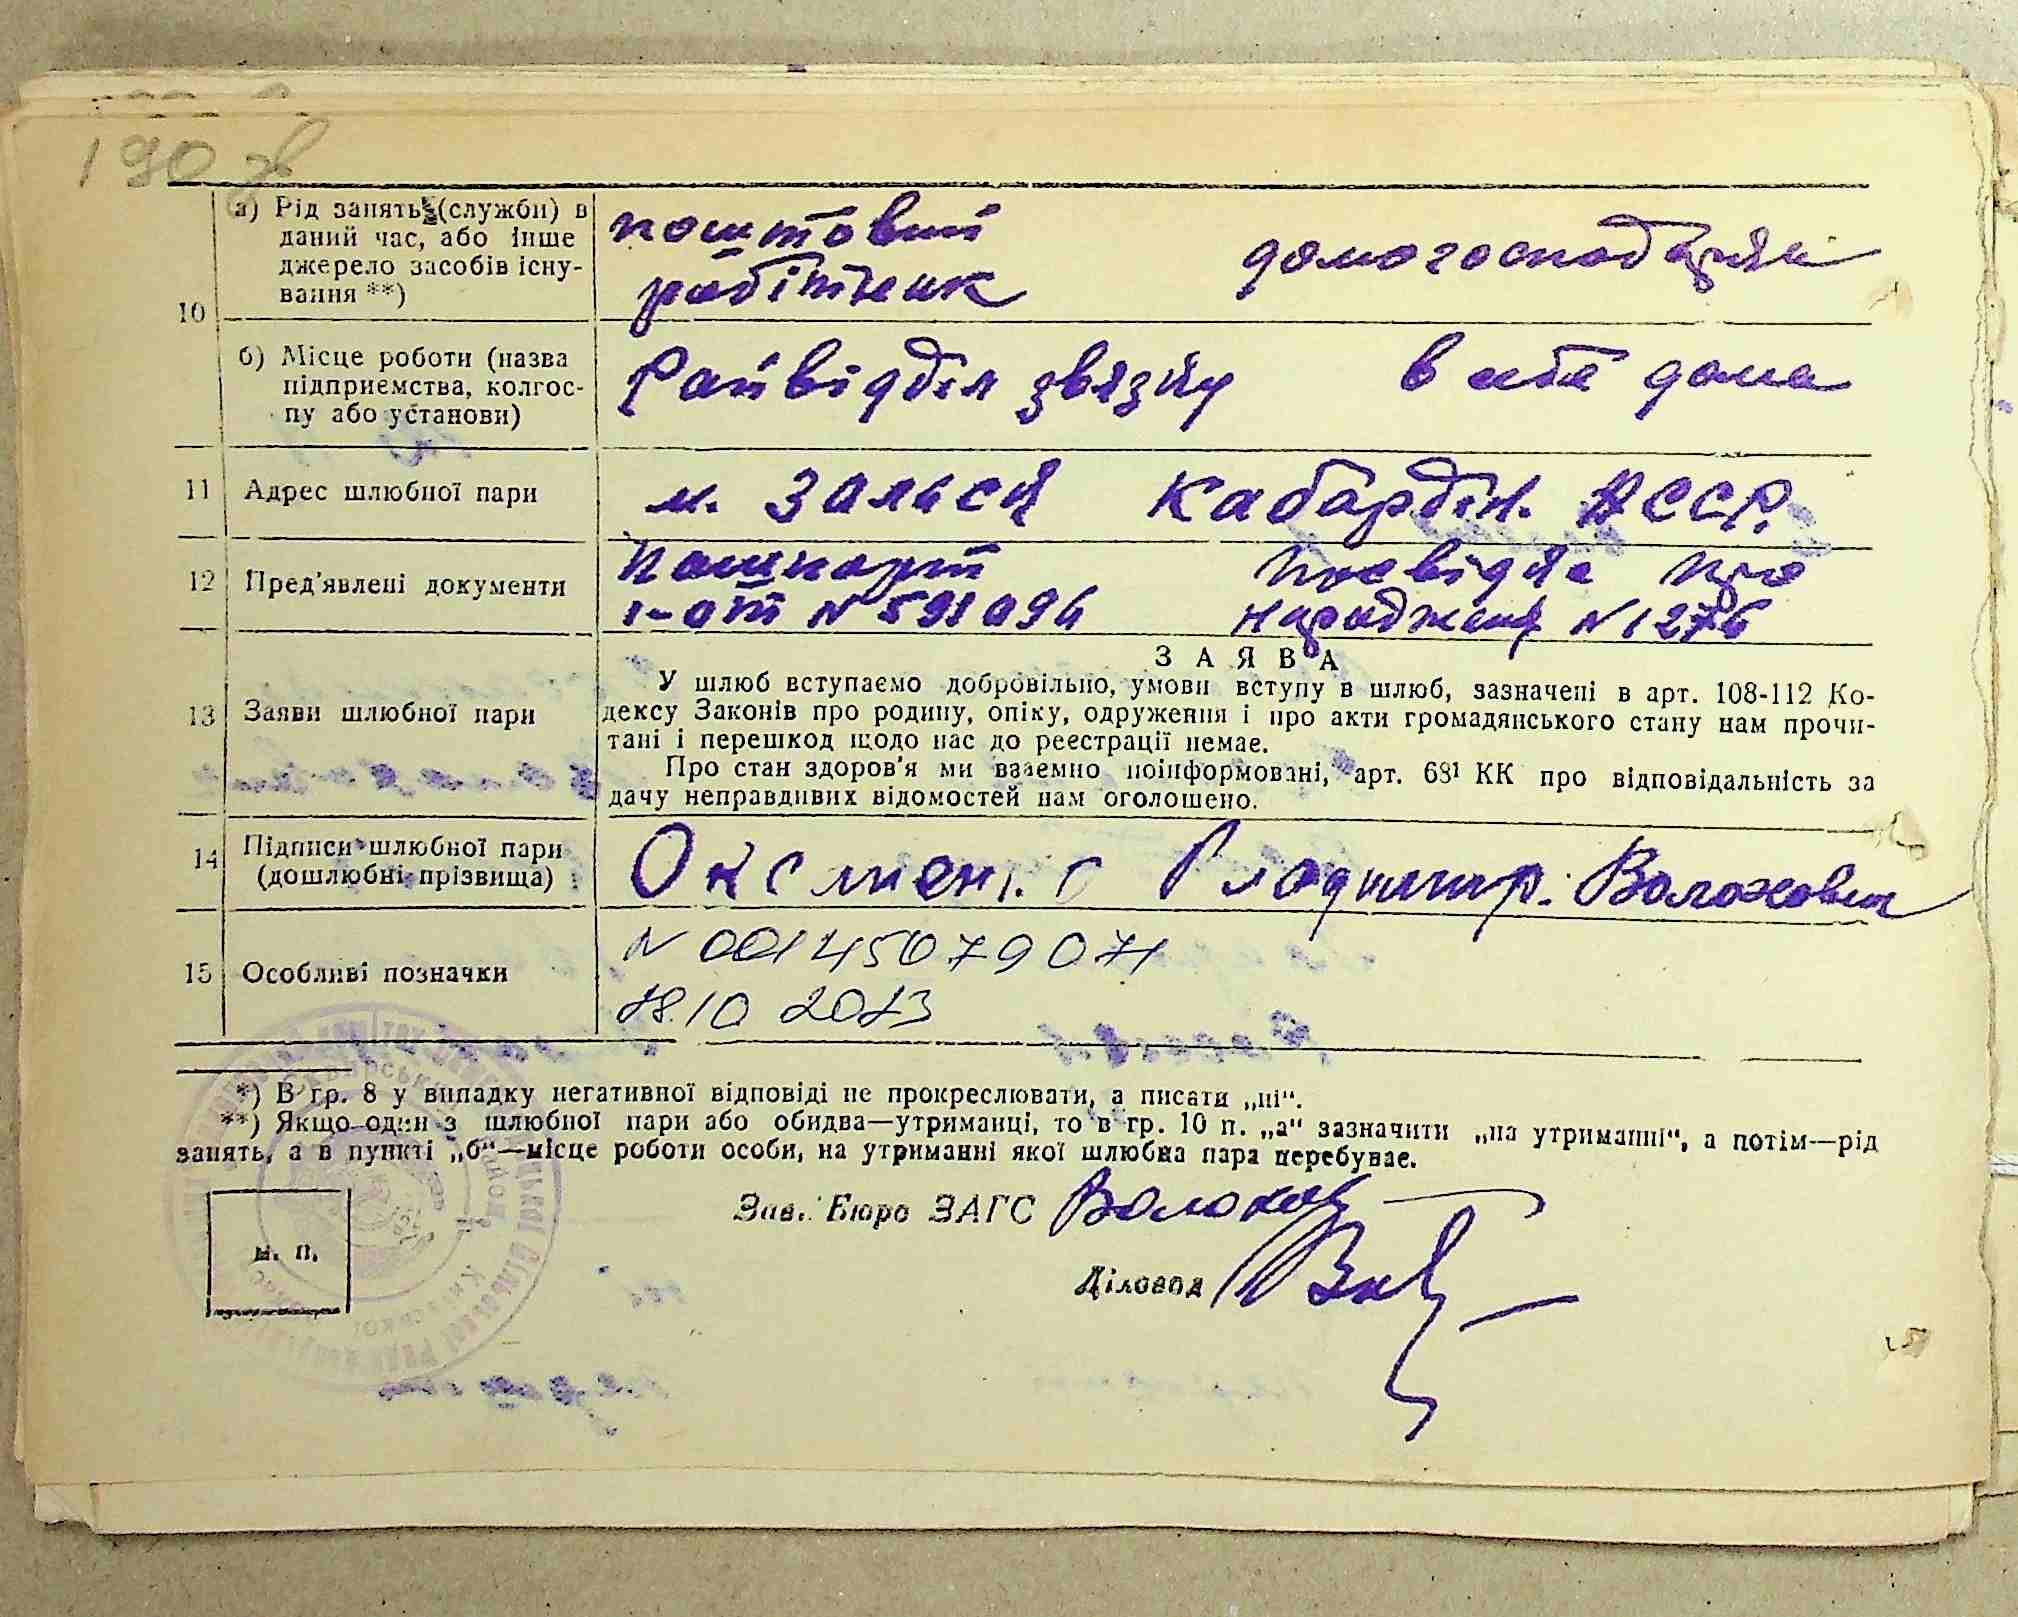 190 зв
10
а) Рід занять (служби) в
даний час, або інше
джерело засобів існу-
вання **)
поштовий
робітник
домогосподарка
б) Місце роботи (назва
підприємства, колгос-
пу або установи)
Райвідділ звязку
в себе дома
11 Адрес шлюбної пари
м. Кабардін. АССР.
12 Пред'явлені документи
Пашпорт
N 591094
про
народження N 1276
13 Заяви шлюбної пари
ЗАЯВА
У шлюб вступаємо добровільно, умови вступу в шлюб, зазначені в арт. 108-112 Ко-
дексу Законів про родину, опіку, одруження і про акти громадянського стану нам прочи-
тані і перешкод щодо нас до реєстрації немає.
Про стан здоров'я ми взаємно поінформовані, арт. 68¹ КК про відповідальність за
дачу неправдивих відомостей нам оголошено.
14 Підписи шлюбної пари
(дошлюбні прізвища)
15 Особливі позначки
N 00145079071
18.10 2013
*) В гр. 8 у випадку негативної відповіді не прокреслювати, а писати „ні“.
**) Якщо один з шлюбної пари або обидва—утриманці, то в гр. 10 п. „а“ зазначити „на утриманні“, а потім—рід
занять, а в пункті „б“—місце роботи особи, на утриманні якої шлюбна пара перебуває.
Зав. Бюро ЗАГС
м. п.
Діловод